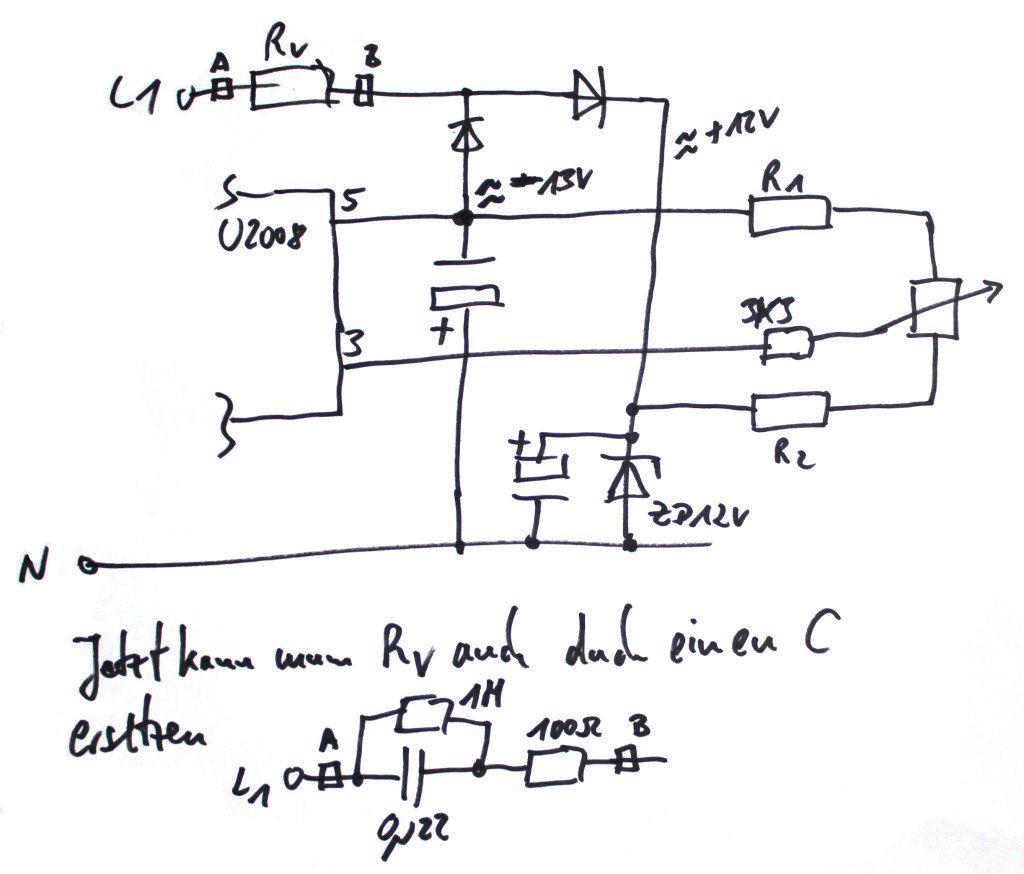 A
Rv
B
L1
≈ +12V
≈ -13V
5
U2008
R1
3K3
3
+
+
R2
ZD12V
N
Jetzt kann man Rv auch duch einen C
ersetzen
1M
100Ω
A
B
L1
0µ22